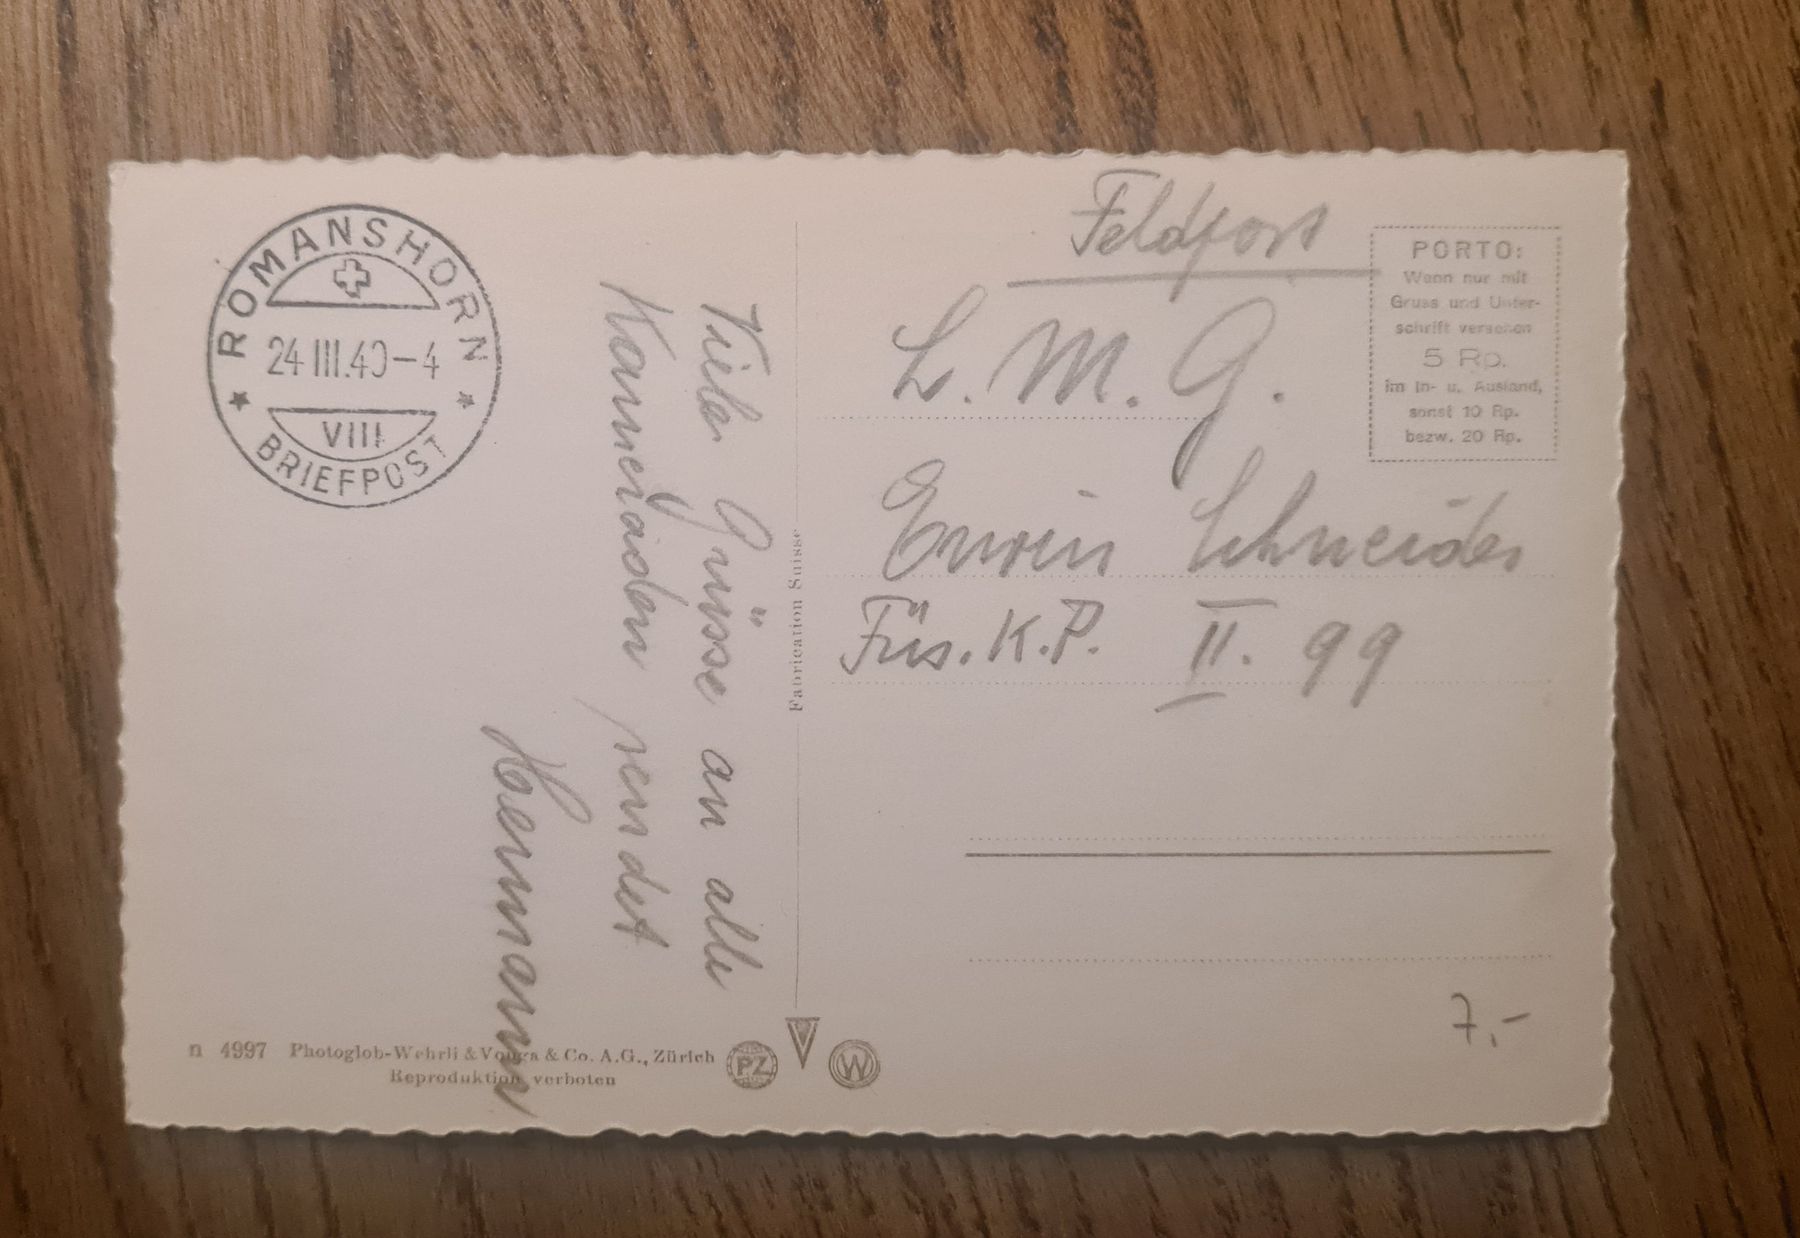 ROMANSHORN
24 III.40-4
VIII
BRIEFPOST
Viele Grüsse an alle
Kameraden sendet
Hermann
Fabrication Suisse
Feldpost
L. M. G.
Erwin Schneider
Füs. K.P. II. 99
PORTO:
Wenn nur mit
Gruss und Unter-
schrift versehen
5 Rp.
im In- u. Ausland,
sonst 10 Rp.
bezw. 20 Rp.
7.-
n 4997 Photoglob-Wehrli & Vouga & Co. A.G., Zürich
Reproduktion verboten
PZ
V
W